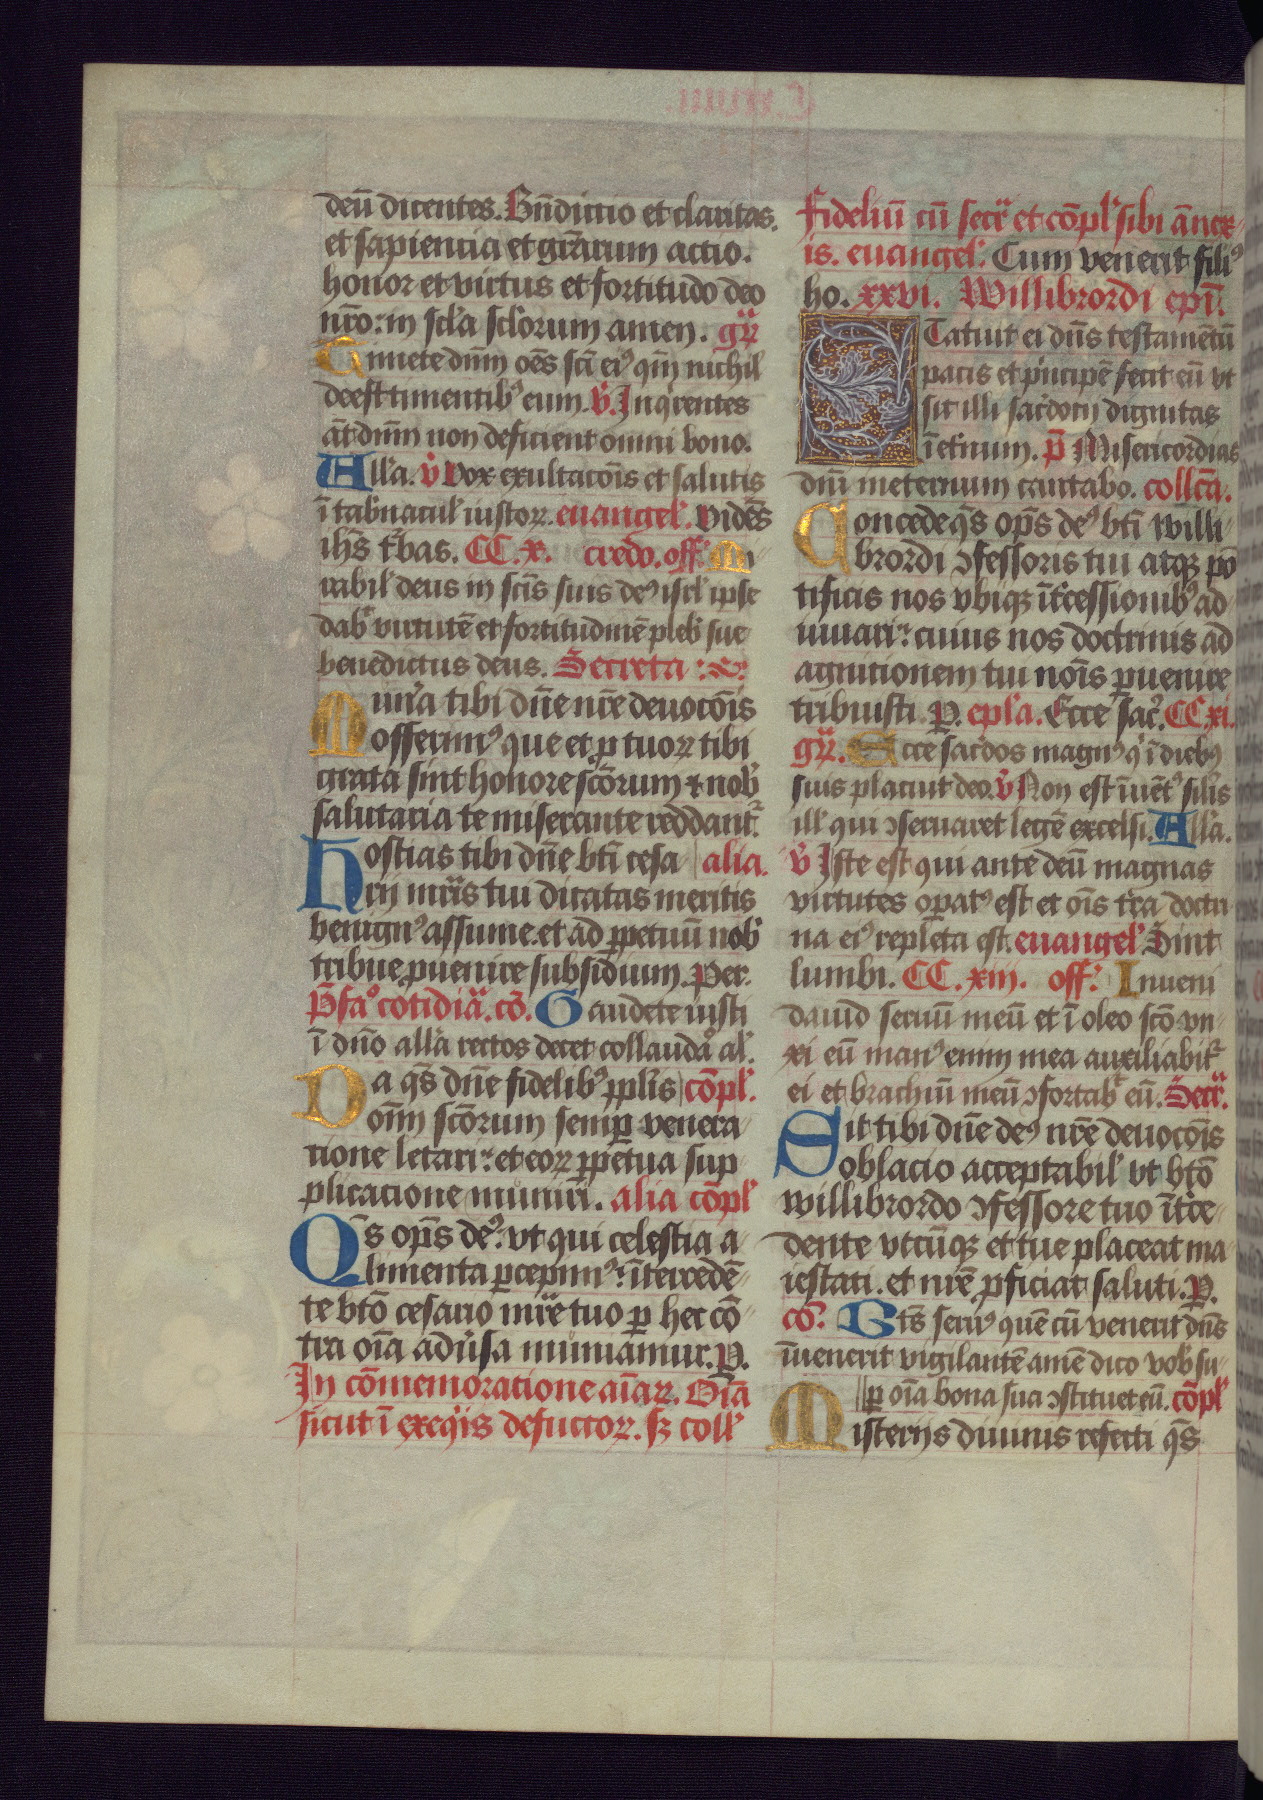 deū dicentes. Bn̄dictio et claritas.
et sapiencia et gr̄arum actio.
honor et virtus et fortitudo deo
nr̄o: in scl̄a scl̄orum amen. gr̄
Timete dn̄m oēs sc̄i eiꝰ qm̄ nichil
deest timentibꝰ eum. v̄. Inq̄rentes
āt dn̄m non deficient omni bono.
All̄a. v̄ Vox exultacōis et salutis
ī tab̄nacul̄ iustoꝝ. euangel̄. Videns
ih̄s t̄bas. CC. x. credo. off̄. Mi-
rabil̄ deus in sc̄is suis deꝰ isrl̄ ipse
dab̄ virtutē et fortitudinē pleb̄ sue
benedictus deus. Secreta
Mun̄a tibi dn̄e nr̄e deuocōis
offerimꝰ que et ꝓ tuoꝝ tibi
grata sint honore sc̄orum & nob̄
salutaria te miserante reddant̄.
Hostias tibi dn̄e bt̄i cesa- alia.
rij mr̄is tui dicatas meritis
benignꝰ assume. et ad ꝑpetuū nob̄
tribue ꝓuenire subsidium. Per.
P̄fac̄o cotidiā. cō. Gaudete iusti
ī dn̄o all̄a rectos decet collaudac̄o al̄.
Da qs̄ dn̄e fidelibꝰ ppl̄is cōpl̄.
oīm sc̄orum semꝑ venera-
tione letari: et eoꝝ ꝑpetua sup-
plicatione muniri. alia cōpl̄
Qs̄ opn̄s deꝰ: vt qui celestia a-
limenta ꝑcepimꝰ: īterceden̄-
te bt̄o cesario mr̄e tuo ꝑ hec cō-
tra oīa adūsa muniamur. P.
In cōmemoratione aīaꝝ. Oīa
sicut ī exeq̄is defūctoꝝ. sꝫ coll̄
fideliū cū secr̄ et cōpl̄ sibi ānex-
is. euangel̄. Cum venerit filiꝰ
ho. xxvi. Willibrordi epī.
STatuit ei dn̄s testamentū
pacis et pͥncipē fecit eū vt
sit illi sac̄dotij dignitas
ī et̄num. p̄ Misericordias
dn̄i in eternum cantabo. collc̄a.
Concede qs̄ opn̄s deꝰ bt̄i Willi-
brordi ꝯfessoris tui atqꝫ pō-
tificis nos vbiqꝫ īt̄cessionibꝰ ad-
iuuari: cuius nos doctrinis ad
agnitionem tui noīs ꝑuenire
tribuisti. P. epl̄a. Ecce sac̄. CC. xi.
gr̄. Ecce sac̄dos magnꝰ q̄ ī diebꝰ
suis placuit deo. v̄ Non est īuētꝰ sil̄is
ill̄ qui ꝯseruaret legē excelsi. All̄a.
v̄ Iste est qui ante deū magnas
virtutes oꝑatꝰ est et oīs tr̄a doctri-
na eiꝰ repleta est. euangel̄. Sint
lumbi. CC. xiii. off̄. Inueni
dauid seruū meū et ī oleo sc̄o vn-
xi eū manꝰ enim mea auxiliabit̄
ei et brachiū meū ꝯfortab̄ eū. Secr̄.
Sit tibi dn̄e deꝰ nr̄e deuocōis
oblacio acceptabil̄ vt bt̄o
willibrordo ꝯfessore tuo īt̄ce-
dente vtcūqꝫ et tue placeat ma-
iestati. et nr̄e ꝓficiat saluti. P.
cō. Bt̄s seruꝰ quē cū venerit dn̄s
īuenerit vigilantē amē dico vob̄ su-
ꝑ oīa bona sua ꝯstituet eū. cōpl̄
Misterijs diuinis refecti qs̄